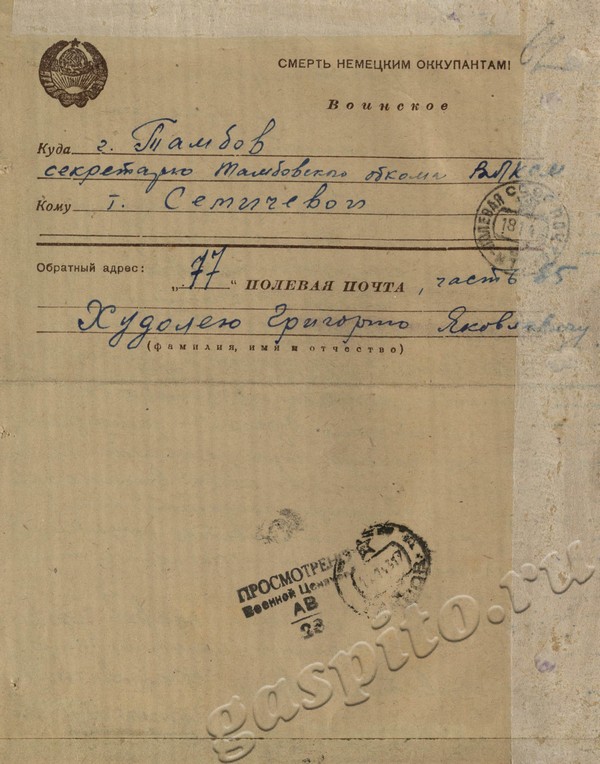 СМЕРТЬ НЕМЕЦКИМ ОККУПАНТАМ!
Воинское
Куда г. Тамбов
секретарю Тамбовского обкома ВЛКСМ
Кому т. Семичевой
Обратный адрес:
„77“ ПОЛЕВАЯ ПОЧТА, часть
Худолею Григорию Яковлевичу
(фамилия, имя и отчество)
ПОЛЕВАЯ
ПРОСМОТРЕНО
Военной Цензурой
АВ
23
gaspito.ru